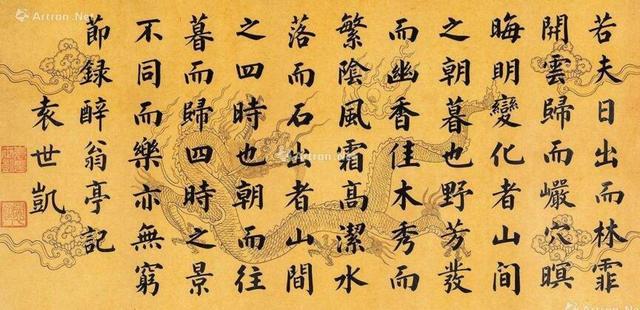 若夫日出而林霏
開雲歸而巖穴暝
晦明變化者山間
之朝暮也野芳發
而幽香佳木秀而
繁陰風霜高潔水
落而石出者山間
之四時也朝而往
暮而歸四時之景
不同而樂亦無窮
節錄醉翁亭記
袁世凱
Artron.Net